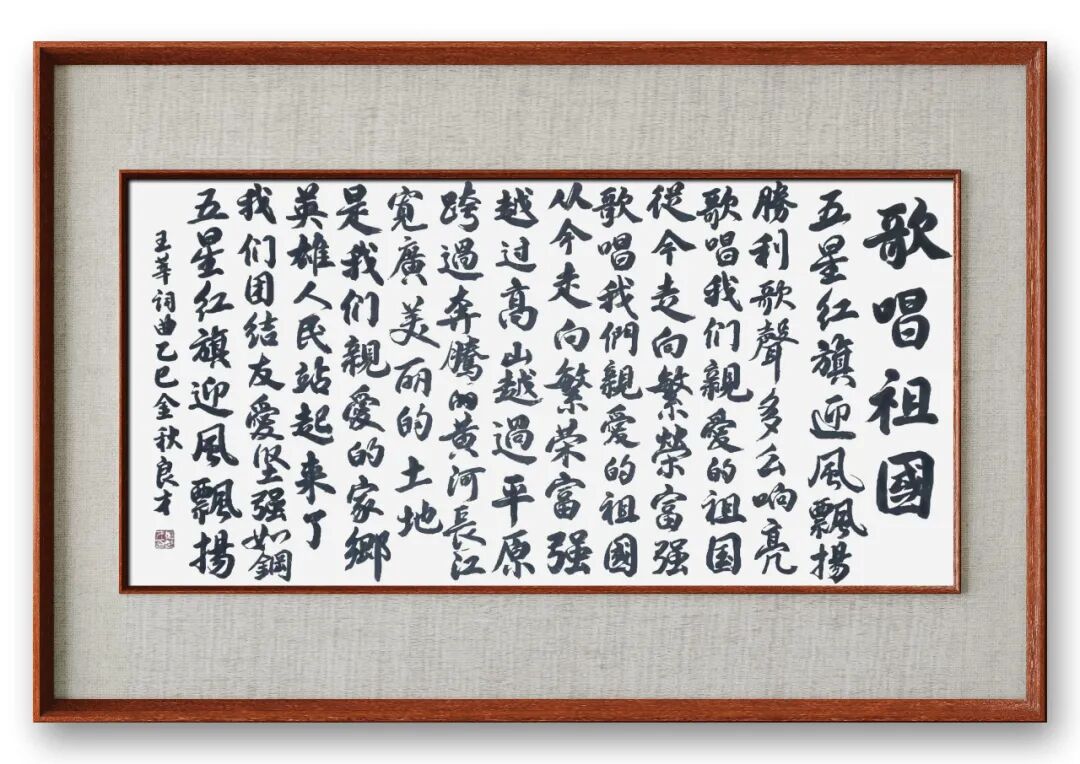 歌唱祖國
五星红旗迎風飄揚
勝利歌聲多么响亮
歌唱我们親爱的祖国
從今走向繁榮富强
歌唱我們親愛的祖國
从今走向繁荣富强
越过高山越過平原
跨過奔騰的黄河長江
寛廣美丽的土地
是我们親愛的家鄉
英雄人民站起来了
我们团结友愛坚强如鋼
五星红旗迎風飄揚
王莘词曲乙巳金秋良才